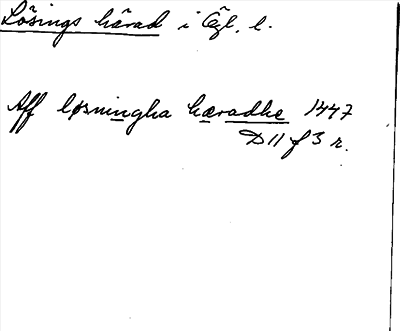 Lösings härad i Ögl. l.
Aff løsningha hæradhe 1447
D 11 f 3 r.